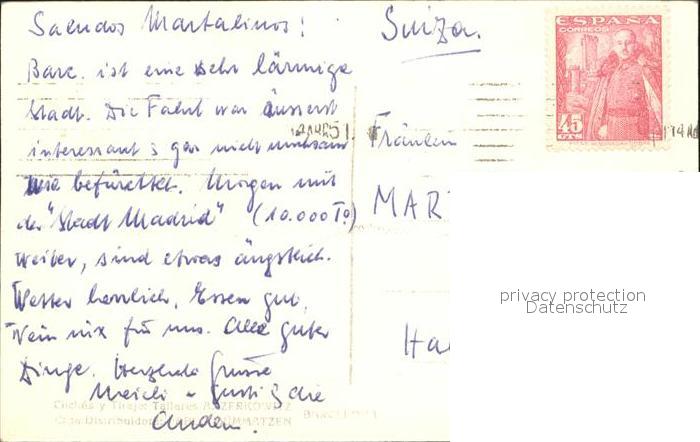 Saludos Martalinos!
Barc. ist eine sehr lärmige
Stadt. Die Fahrt war äusserst
interessant & gar nicht mühsam
wie befürchtet. Morgen mit
der "Stadt Madrid" (10.000 To)
weiter, sind etwas ängstlich.
Wetter herrlich, Essen gut,
Wein nix für uns. Alle guter
Dinge. Herzliche Grüsse
Meieli - Gusti & die
Andern.
Suiza.
Fräulein
MAR
Ha
ESPAÑA
CORREOS
45
CTS
privacy protection
Datenschutz
Clichés y Tiraje: Talleres A. ZERKOWITZ
BARCELONA